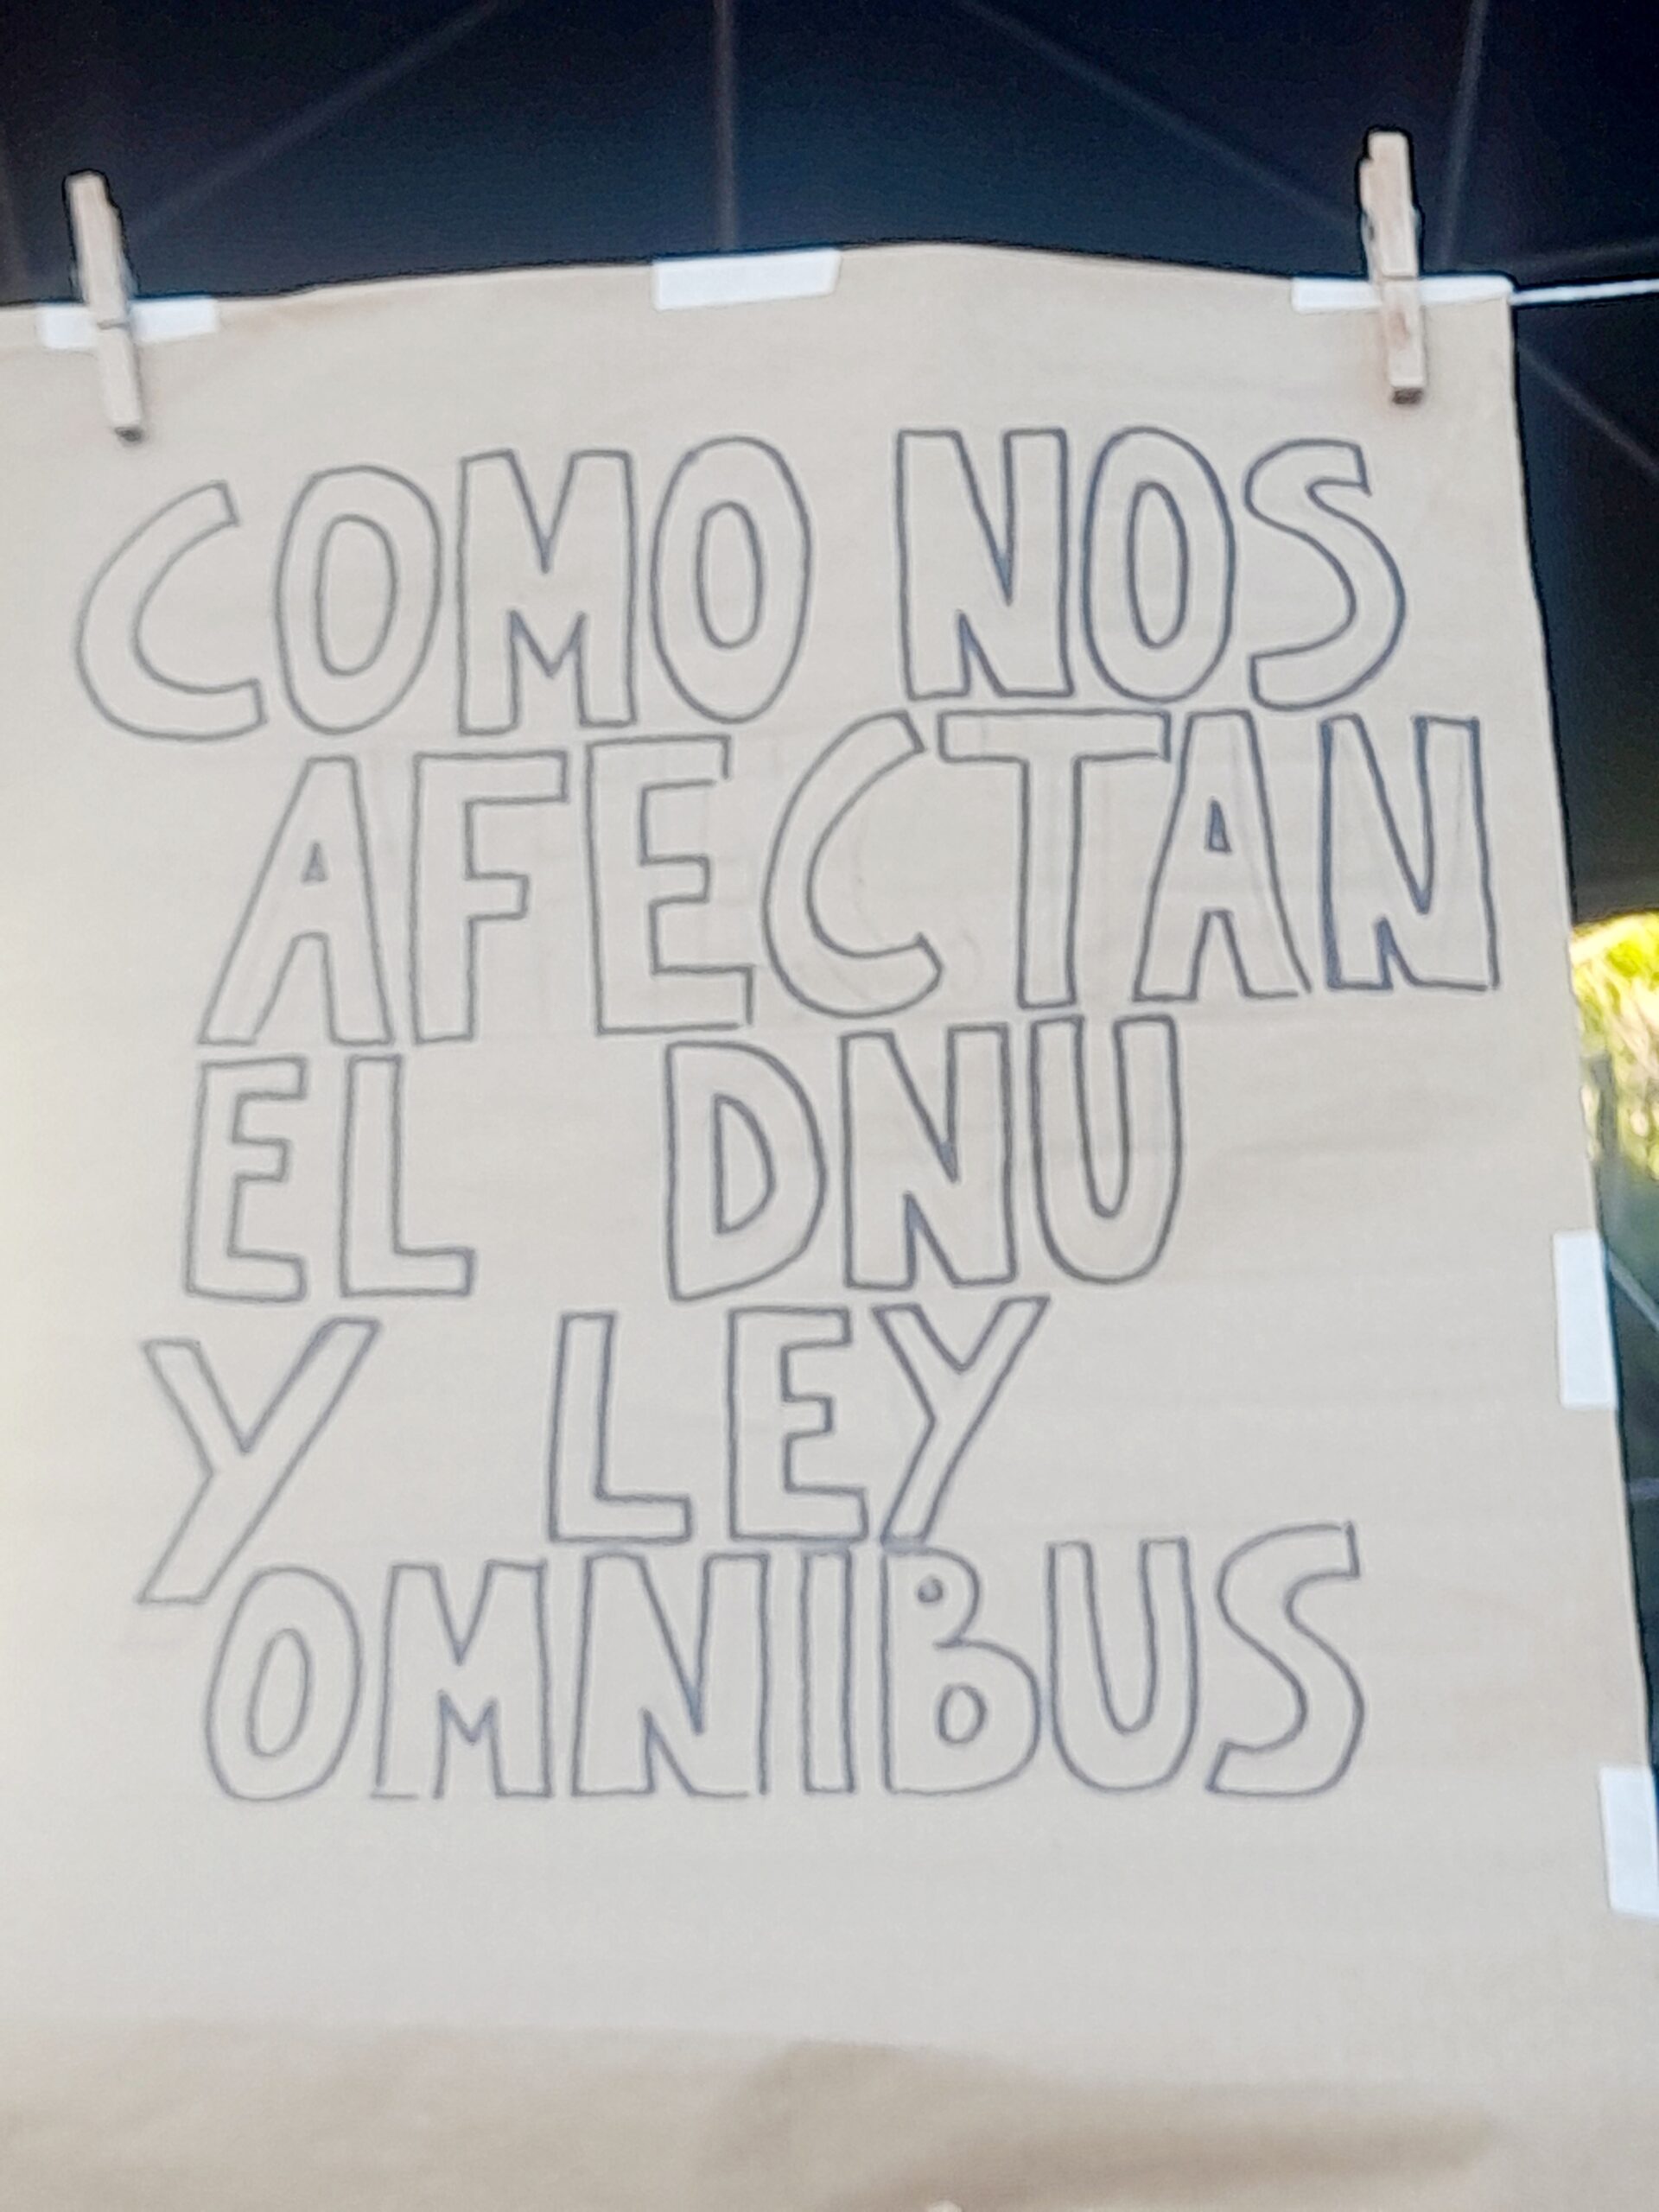 COMO NOS
AFECTAN
EL DNU
Y LEY
OMNIBUS